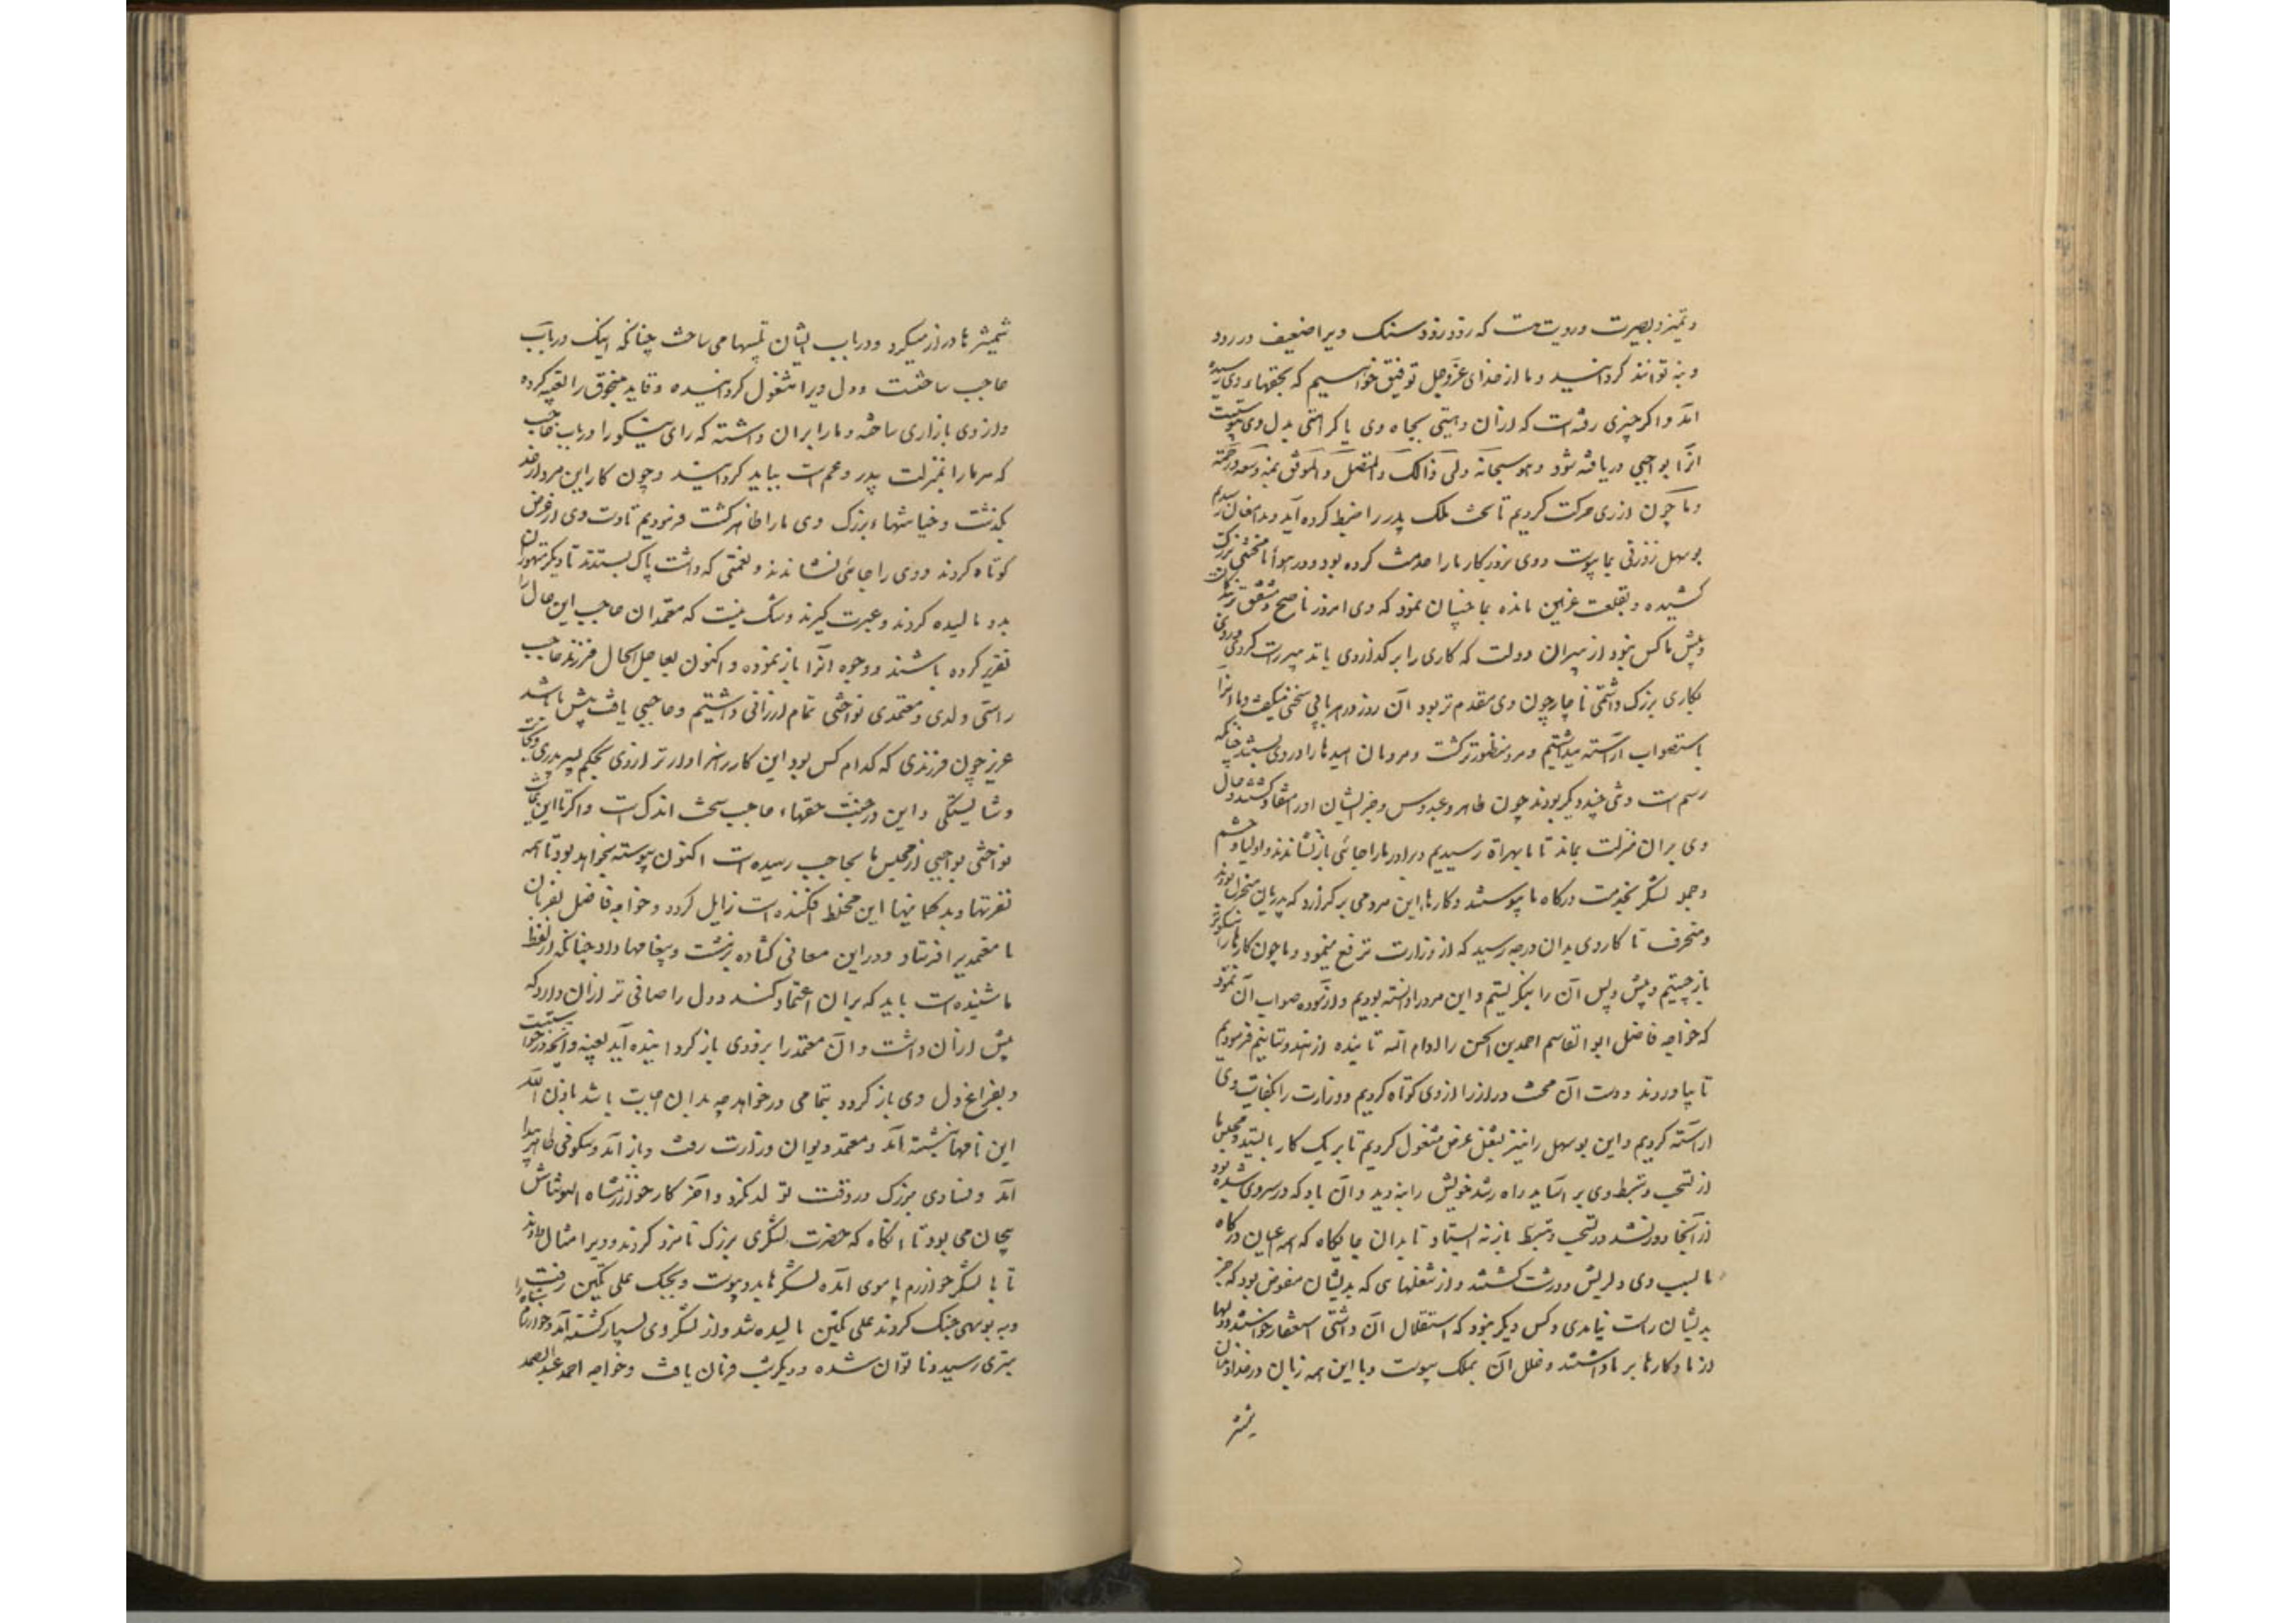 و تمیز و بصیرت و رویت است که زود زود سنگ ویرا ضعیف در رود
و نه توانند کردانید و ما از خدای عزوجل توفیق خواهیم که بحقهاء وی رسیده
آید و اگر چیزی رفته است که از آن وهنی بجاه وی یا کراهتی بدل وی پیوست
انرا بواجبی دریافته شود و هو سبحانه ولی ذالک و المتفضل و الموفق بمنه و سعه رحمته
و ما چون از ری حرکت کردیم تا تخت ملک پدر را ضبط کرده آید و بدامغان رسیدیم
بوسهل زوزنی بما پیوست و وی بروزکار ما را خدمت کرده بود و در هواء ما محنتی بزرک
کشیده و بقلعت غزنین مانده بما چنان نمود که وی امروز ناصح و مشفق
و پیش ما کس نبود از پیران دولت که کاری را بر کذاردی یا تدبیر راست کردی
بکاری بزرک داشتمی ناچار چون وی مقدم تر بود آن روز در هر بابی سخنی میکفت و ما انرا
باستصواب آراسته میداشتیم و مرد منظورتر کشت و مردمان امیدها را در وی بستند چنانکه
رسم است و تنی چند دیکر بودند چون طاهر و عبدوس و جز ایشان او را منقاد کشتند و حال
وی بر ان منزلت بماند تا ما بهراة رسیدیم و برادر ما را جائی باز نشاندند و اولیا و حشم
و جمله لشکر بخدمت درکاه ما پیوستند و کارها این مرد می بر کذارد که پدریان
و منحرف تا کار وی بدان درجه رسید که از وزارت ترفع مینمود و ما چون کارها را نیکوتر
باز جستیم و پیش و پس آن را بنکریستیم و این مرد را دانسته بودیم و آزموده صواب آن نمود
که خواجه فاضل ابو القاسم احمد بن الحسن را ادام الله تائیده از هندوستان فرمودیم
تا بیاوردند و دست آن محنت دراز را از وی کوتاه کردیم و وزارت را بکفایت وی
آراسته کردیم و این بوسهل را نیز بشغل عرض مشغول کردیم تا بر یک کار بایستد و مجلس ما
از تسحب و تبسط وی بر آساید راه رشد خویش را بندید و آن باد که در سر وی شده بود
از آنجا دور نشد و در تسحب و تبسط باز نه ایستاد تا بدان جایکاه که همه اعیان درکاه
ما بسبب وی دلریش و درشت کشتند و از شغلهائی که بدیشان مفوض بود که جز
بدیشان راست نیامدی و کس دیکر نبود که استقلال آن داشتی استعفا خواستند و دلها
از ما و کارها برداشتند و خلل آن بملک پیوست و با این همه زبان در خداوندان
شمشیر
شمشیرها دراز میکرد و در باب ایشان تلبیسها می ساخت چنانکه اینک در باب
حاجب ساخت و دل ویرا مشغول کردانیده و قاید منجوق را تعبیه کرده
و از وی بازاری ساخته و ما را بران داشته که رای نیکو را در باب حاجب
که مر ما را بمنزلت پدر و عم است بباید کردانید و چون کار این مرد از حد
بکذشت و خیانتهاء بزرک وی ما را ظاهر کشت فرمودیم تا دست وی از عرض
کوتاه کردند و وی را جائی نشاندند و نعمتی که داشت پاک بستدند تا دیکر متهوران
بدو مالیده کردند و عبرت کیرند و شک نیست که معتمدان حاجب این حال را
تقریر کرده باشند و وجوه آنرا باز نموده و اکنون بعاجل الحال فرزند حاجب
راستی ولدی و معتمدی نواختی تمام ارزانی داشتیم و حاجبی یافت پیش ما باشد
عزیز چون فرزندی که کدام کس بود این کار را سزاوارتر از وی بحکم پسر پدری و نجابت
و شایستکی و این در جنب حقهاء حاجب سخت اندک است و اکر تا این غایت
نواختی بواجبی از مجلس ما بحاجب رسیده است اکنون پیوسته بخواهد بود تا همه
نفرتها و بدکمانیها این مخلط افکنده است زایل کردد و خواجه فاضل بفرمان
ما معتمدیرا فرستاد و در این معانی کشاده نبشت و پیغامها داد چنانکه از لفظ
ما شنیده است باید که بران اعتماد کند و دل را صافی تر ازان دارد که
پیش ازان داشت و آن معتمد را بزودی باز کردانیده آید بعینه و آنچه درخواستنیست
و بفراغ دل وی باز کردد بتمامی درخواهد چه بدان اجابت باشد باذن الله
این نامها نبشته آمد و معتمد دیوان وزارت رفت و باز آمد و سکونی ظاهر پیدا
آمد و فسادی بزرک در وقت تولد نکرد و آخر کار خوارزمشاه التونتاش
پیچان می بود تا آنکاه که حضرت لشکری بزرک نامزد کردند و ویرا مثال دادند
تا با لشکر خوارزم باموی آمد و لشکرها بدو پیوست و بجنک علی تکین رفت
و به بوسی جنک کردند علی تکین مالیده شد و از لشکر وی بسیار کشته آمد و خوارزمشاه را
تیری رسید و ناتوان شده و دیکر شب فرمان یافت و خواجه احمد عبد الصمد